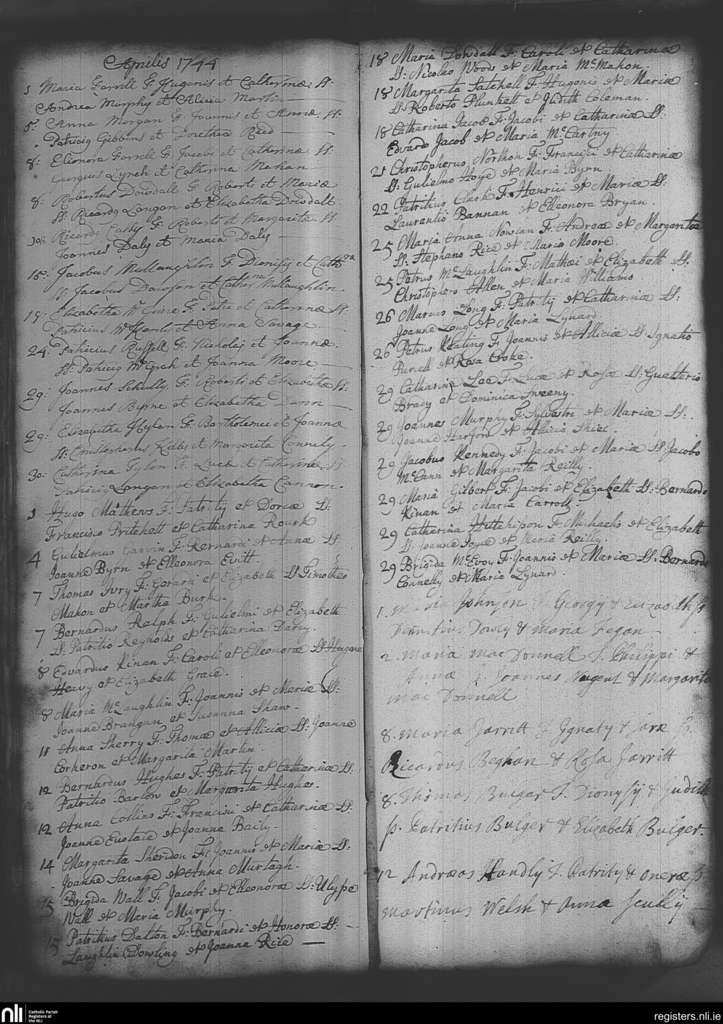 Aprilis 1744
Maria Farrell F. Eugenii et Catherinæ
Andrea Murphy et Alicia
5. Anna Morgan F. Joannis et Annæ
Patricio Gibbins et Dorothea Reed
8. Elionora Farrell F. Jacobi et Catherinæ
Georgius Lynch et Catherina
8. Robertus Dowdall F. Roberti et Mariæ
Ricardo Langan et Elizabetha Dowdall
10. Ricard F. Roberti et Margarita
Joannes Daly et Maria Daly
15. Jacobus Mullaughlin F. Dionisy et
Jacobus et McLaughlin
Elizabetha F. Petri et Catherinæ
Patricius et Anna Savage
24. Patricius Russell F. Nicholai et Joannæ
Patricio et Joanna Moore
29. Joannes F. Roberti et Elizabetha
Joannes Byrne et Elizabetha
29. Elizabetha F. Bartholemei et Joannæ
Kelly et Margarita Connely
30. Catherina F. Lucæ et Catherinæ
Patricio Langan et Elizabetha Cannon
3 Hugo Mathews F. Patritij et Dorcæ Ss.
Francisco Pritchett et Catharina Rourk
4 Gulielmus Garvin F. Bernardi et Annæ Ss.
Joanne Byrn et Elleonora Evitt.
7 Thomas Ivry F. Gerardi et Elizabeth Ss. Timotheo
Mahon et Martha Burk.
7 Bernardus Ralph F. Gulielmi et Elizabeth
Ss. Patritio Reynolds et Catharina Darcy.
8 Edvardus Kinan F. Caroli et Elleonoræ Ss. Hugone
Heavy et Elizabeth Grace.
8 Maria McLaughlin F. Joannis et Mariæ Ss.
Joanne Brangan et Susanna Shaw.
11 Anna Sherry F. Thomæ et Alliciæ Ss. Joanne
Corheron et Margarita Martin.
12 Bernardus Hughes F. Patritij et Catharinæ Ss.
Patritio Barlow et Margarita Hughes.
12 Anna Collins F. Francisci et Catharinæ Ss.
Joanne Eustace et Joanna Baily.
14 Margarita Sheridon F. Joannis et Mariæ Ss.
Joanne Savage et Anna Murtagh.
15 Brigida Wall F. Jacobi et Elleonoræ Ss. Ulysse
Wall et Maria Murphy
15 Patritius Dalton F. Bernardi et Honoræ Ss.
Laughlin Dowling et Joanna Rice
18 Maria Dowdall F. Caroli et Catharinæ
Ss. Nicolao Woods et Maria McMahon.
18 Margarita Satchell F. Hugonis et Mariæ
Ss. Roberto Plunkett et Judith Coleman.
18 Catharina Jacob F. Jacobi et Catharinæ Ss.
Edvardo Jacob et Maria McCartny
21 Christophorus Northon F. Francisci et Catharinæ
Ss. Gulielmo Hoye et Maria Byrn
22 Patritius Clark F. Henrici et Mariæ Ss.
Laurentio Bannan et Elleonora Bryan.
25 Maria Anna Nowlan F. Andreæ et Margaritæ
Ss. Stephano Rice et Maria Moore
25 Petrus McLaughlin F. Mathæi et Elizabeth Ss.
Christophoro Allen et Maria Williams
26 Marcus Long F. Patritij et Catharinæ Ss.
Joanne Long et Maria Lynard
26 Petrus Keating F. Joannis et Alliciæ Ss. Ignatio
Purcell et Rosa Cooke.
29 Catharina Lee F. Lucæ et Rosæ Ss. Gualterio
Brady et Dominica Sweeny.
29 Joannes Murphy F. Sylvestri et Mariæ Ss.
Joanne Harford et Allicia Shiel.
29 Jacobus Kennedy F. Jacobi et Mariæ Ss. Jacobo
McCann et Margarita Reilly.
29 Maria Gilbert F. Jacobi et Elizabeth Ss. Bernardo
Kinan et Maria Carroll.
29 Catharina Hutchinson F. Michaelis et Elizabeth
Ss. Joanne Joyce et Maria Reilly.
29 Brigida McEvoy F. Joannis et Mariæ Ss. Bernardo
Connelly et Maria Lynard
1. Maria Johnson F. Georgy & Elizabethæ
Dowly & Maria Fegan
2. Maria MacDonnell F. Philippi &
Annæ Joannes Nugent & Margarita
Mac Donnell
8. Maria Jarritt F. Ignaty & Saræ p.
Ricardus Beghan & Rosa Jarritt
8. Thomas Bulgar F. Dionysij & Judith
p. Patritius Bulger & Elizabeth Bulger.
12 Andreas Handly F. Patritij & p
Martinus Welsh & Anna Scully
nli
Catholic Parish
Registers at
the NLI
registers.nli.ie